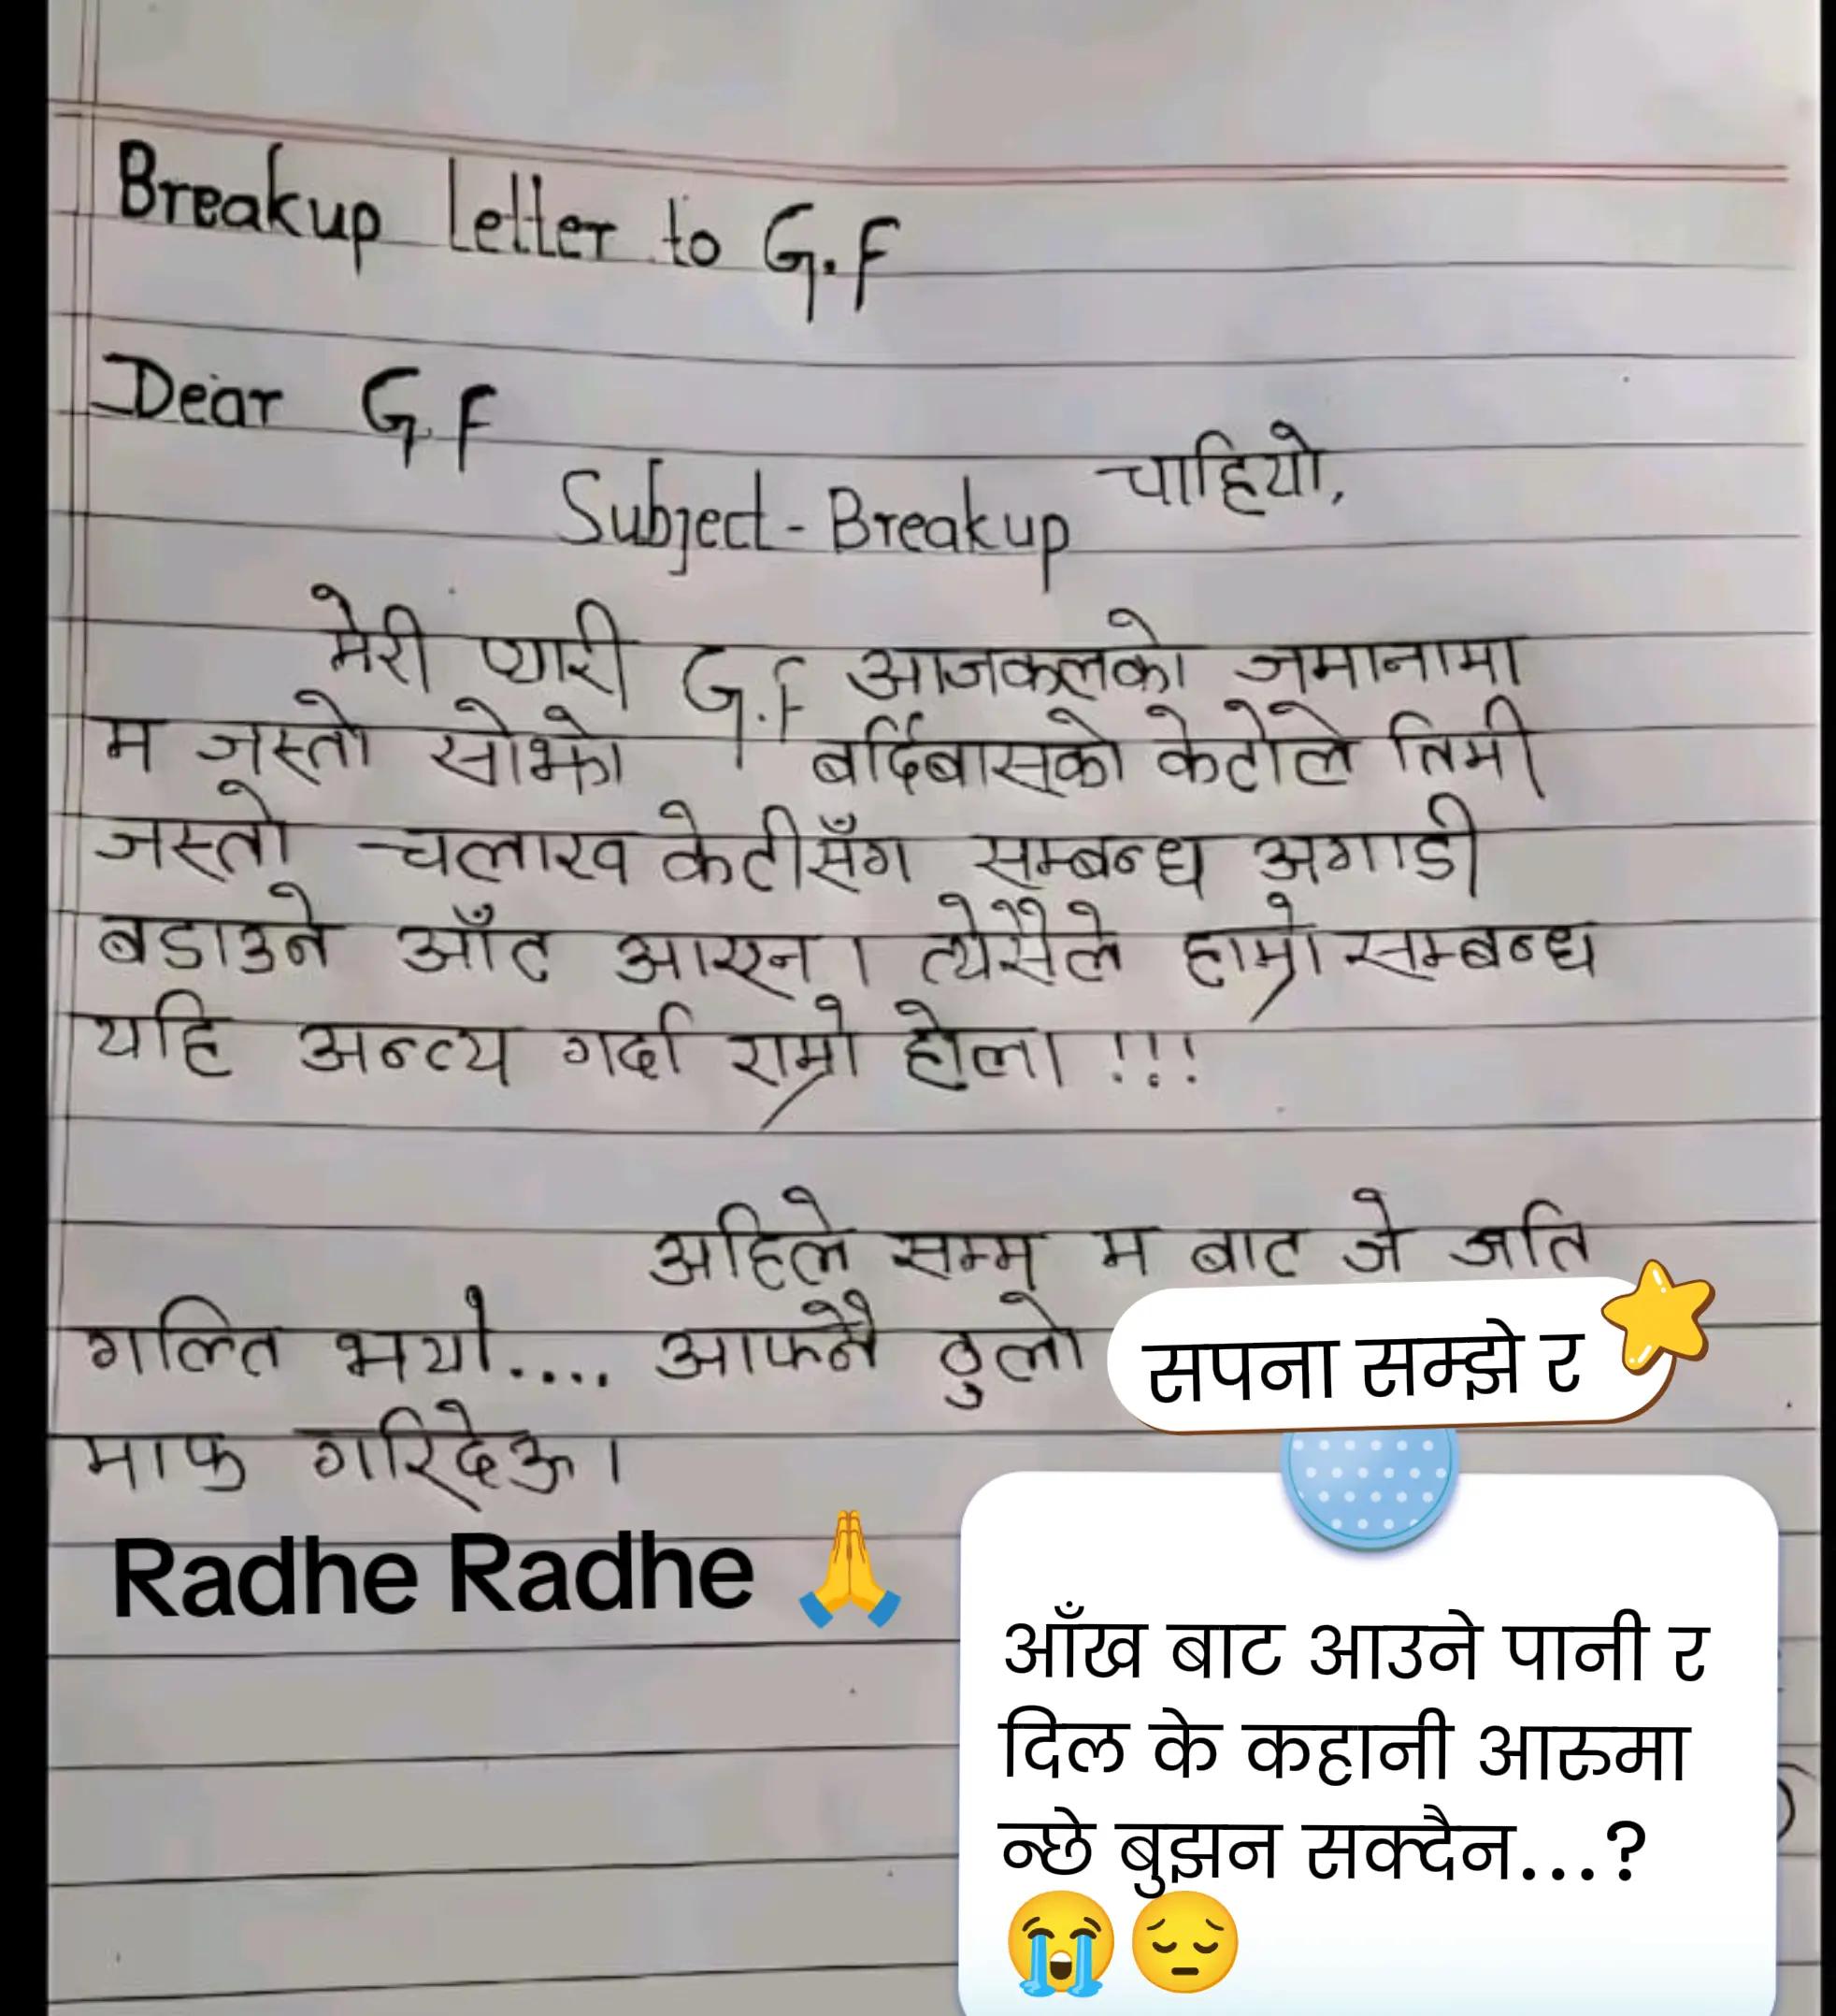 Breakup Letter to G.F
Dear G.F
Subject - Breakup चाहियो,
मेरी प्यारी G.F आजकलको जमानामा
म जस्तो सोझो बर्दिबासको केटोले तिमी
जस्तो चलाख केटीसँग सम्बन्ध अगाडी
बडाउने आँट आएन। त्येसैले हाम्रो सम्बन्ध
यहि अन्त्य गर्दा राम्रो होला !!!
अहिले सम्म म बाट जे जति
गल्ति भयो.... आफ्नै ठुलो
सपना सम्झे र
माफ गरिदेऊ।
Radhe Radhe 🙏
आँख बाट आउने पानी र
दिल के कहानी आरुमा
न्छे बुझन सक्दैन...?
😭😔